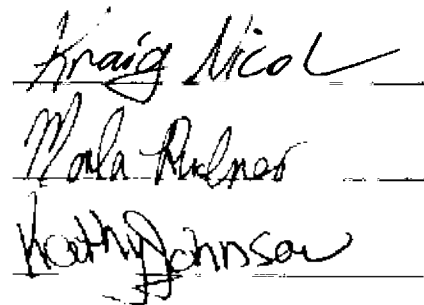 Kraig Nicol
Marla
Kathy Johnson